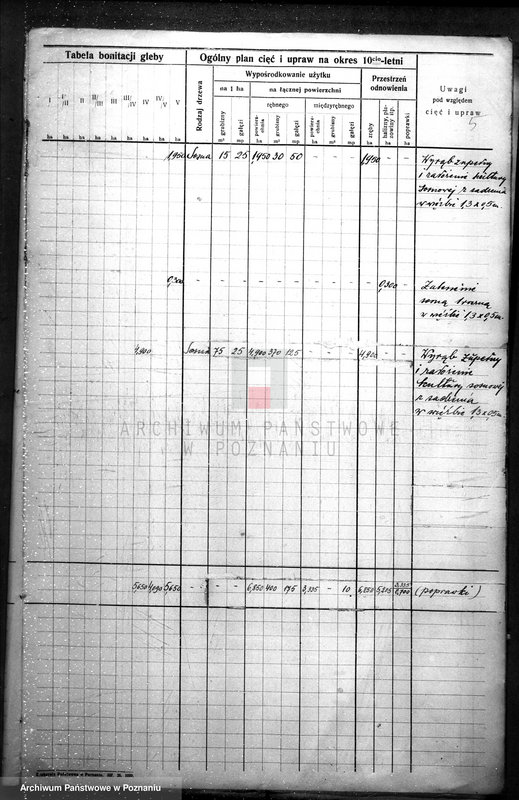 Tabela bonitacji gleby
Ogólny plan cięć i upraw na okres 10cio-letni
Wypośrodkowanie użytku
Przestrzeń odnowienia
Uwagi
pod względem
cięć i upraw
5
Rodzaj drzewa
na 1 ha
na łącznej powierzchni
rębnego
międzyrębnego
I I/II II II/III III III/IV IV IV/V V
grubizny gałęzi powierzchnia grubizny gałęzi powierzchnia grubizny gałęzi zręby halizny, płazowiny itp. poprawki
ha ha ha ha ha ha ha ha ha m³ mp ha m³ mp ha m³ mp ha ha ha
1,950 Sosna 15 25 1,950 30 50 - - - 1,950 - - Wyrąb zupełny
i założenie kultury
sosnowej z sadzenia
w więźbie 1,3 x 0,5 m.
0,300 - - - - - - - - - - 0,300 - Zalesienie
sosną
w więźbie 1,3 x 0,5 m.
4,900 Sosna 75 25 4,900 370 125 - - - 4,900 - - Wyrąb zupełny
i założenie
kultury sosnowej
z sadzenia
w więźbie 1,3 x 0,5 m.
5650 4,090 5650 - - - 6,850 400 175 3,335 - 10 6,850 5,205 (poprawki)
ARCHIWUM PAŃSTWOWE
W POZNANIU
Archiwum Państwowe w Poznaniu